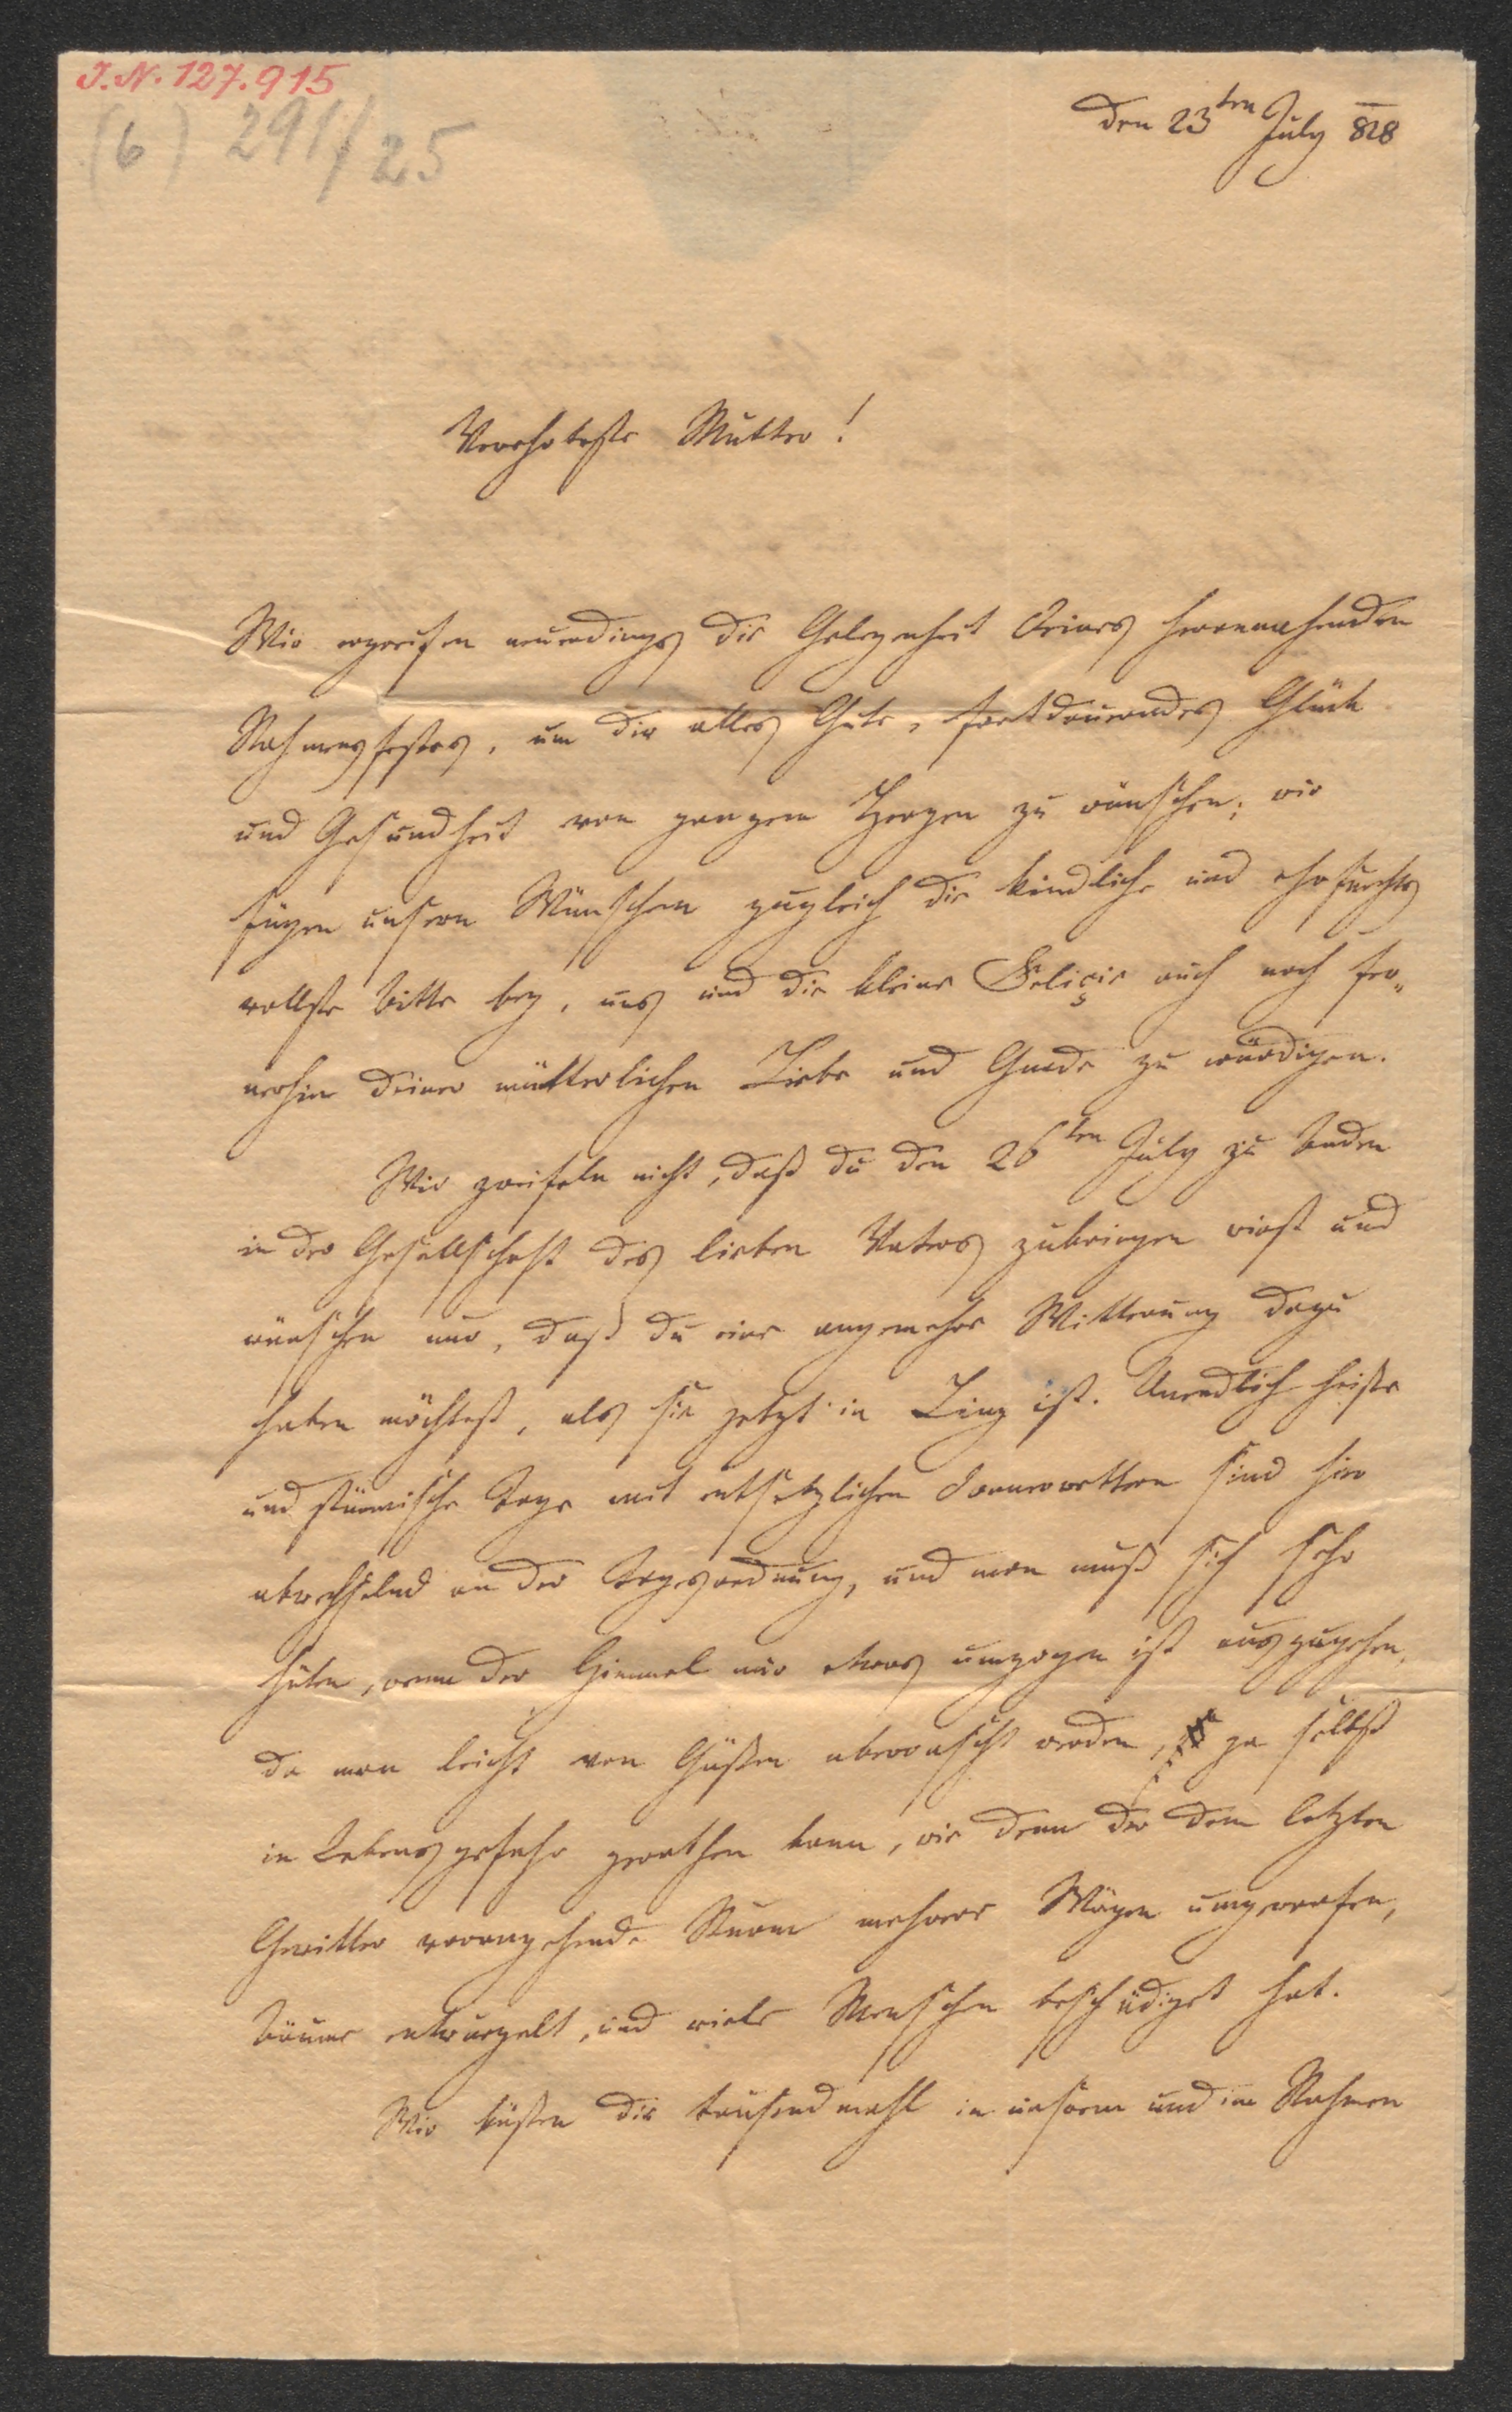 J. N. 127.915
(6) 291/25
Den 23ten July 828
Verehrteste Mutter!
Wir ergreifen neuerdings die Gelegenheit Deines herannahenden
Nahmensfestes, um dir alles Gute, fortdauerndes Glück
und Gesundheit von ganzem Herzen zu wünschen; wir
fügen unsern Wünschen zugleich die kindliche und ehrfurchts
vollste Bitte bey, uns und die kleine Feliçie auch noch fer„
nerhin Deiner mütterlichen Liebe und Gnade zu würdigen.
Wir zweifeln nicht, daß du den 26ten July zu Baden
in der Gesellschaft des lieben Vaters zubringen wirst und
wünschen nur, daß du eine angenehme Witterung dazu
haben möchtest, als sie jetzt in Linz ist. Unendlich heiße
und stürmische Tage mit entsetzlichen Donnerwettern sind hier
abwechselnd an der Tagesordnung, und man muß sich sehr
hüten, wenn der Himmel nur etwas umzogen ist auszugehen,
da man leicht von Güßen überrascht werden, ja selbst
in Lebensgefahr gerathen kann, wie denn der dem letzten
Gewitter vorangehende Sturm mehrere Wägen umgeworfen,
Bäume entwurzelt, und viele Menschen beschädiget hat.
Wir küßen dir tausendmahl in unserm und im Nahmen